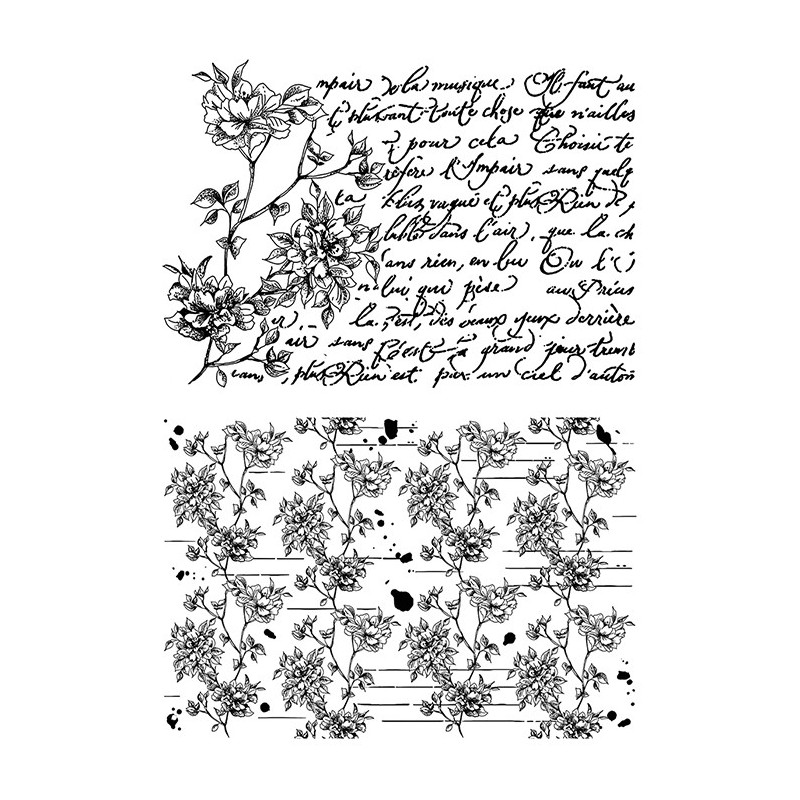 mpair de la musique. Il faut au
t plus avant toute chose que n'ailles
pour cela Choisir te
réfère l'Impair sans quelq
ta Plus vague et plus Rien de
luble dans l'air, que la ch
ans rien, en lui Ou l'
n lui qui pèse aux Prias
er, la, c'est, des beaux yeux derrière
air sans C'est grand jour tremb
dans, plus Rien est par un ciel d'autom